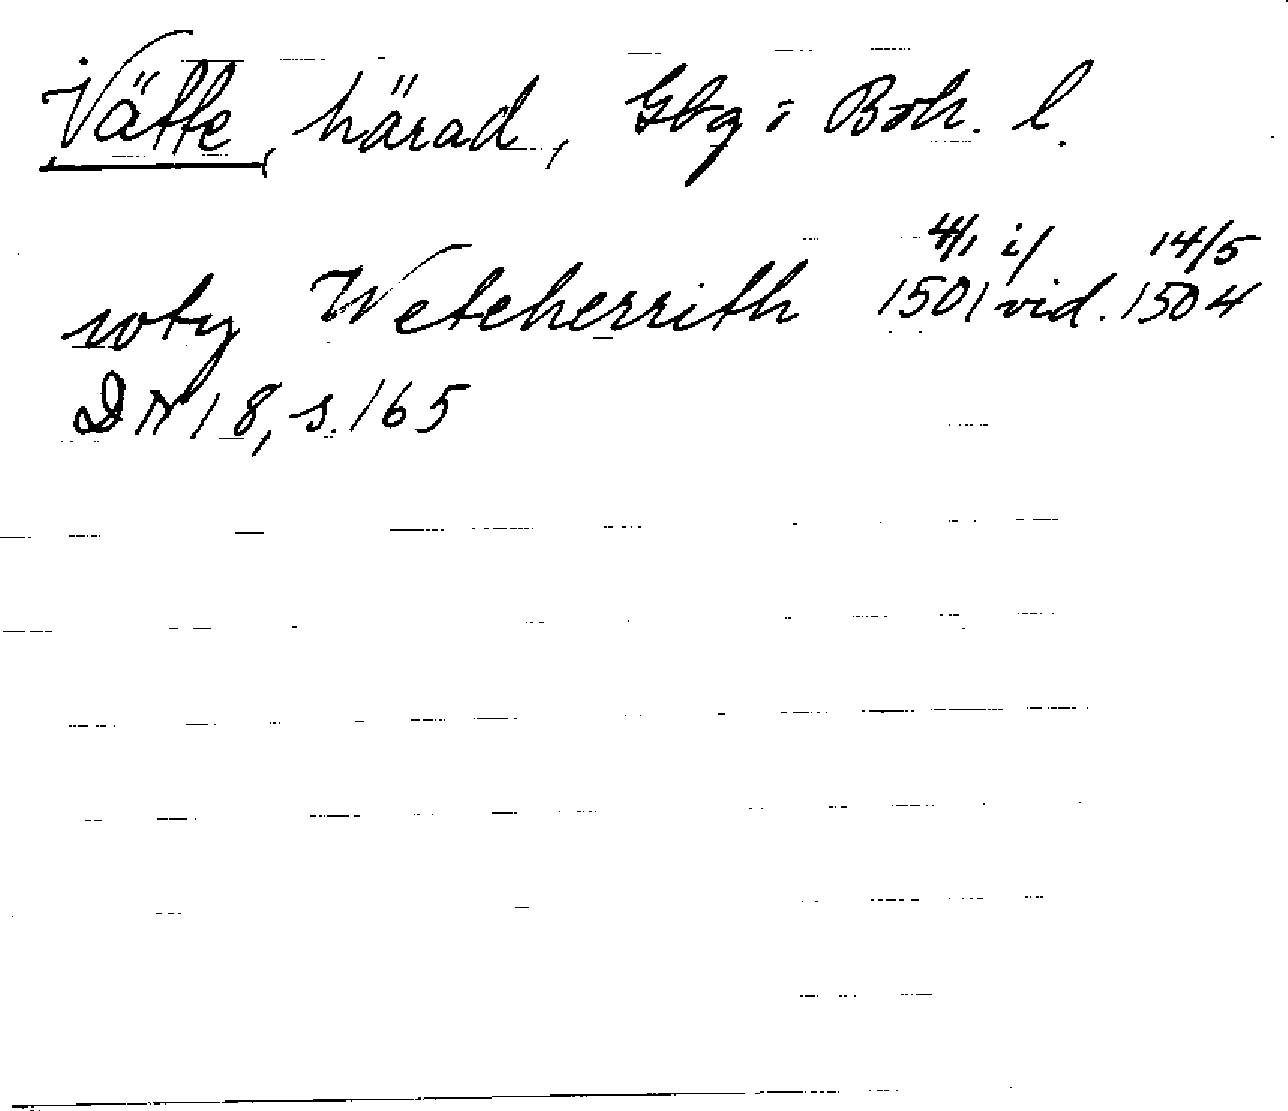 Vätte härad, Gbg o Boh. l.
4/1 i/ 14/5
wty Weteherrith 1501 vid. 1504
DN 18, s. 165